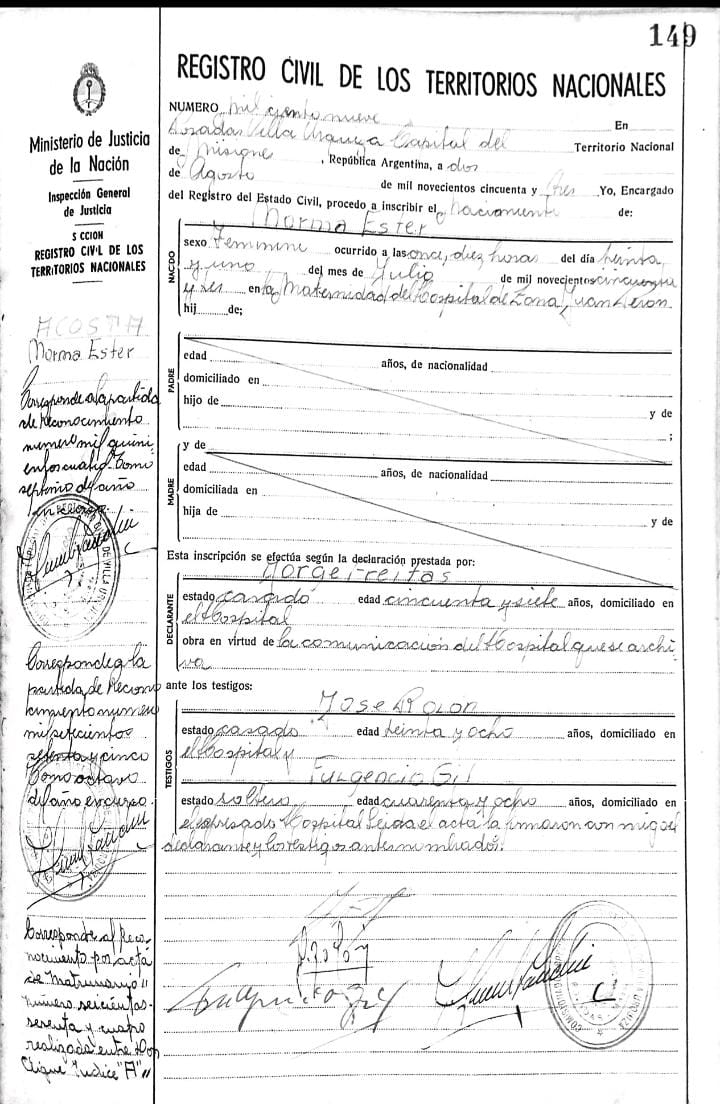 149
REGISTRO CIVIL DE LOS TERRITORIOS NACIONALES
NUMERO mil ciento nueve En
Posadas Villa Urquiza Capital del Territorio Nacional
de Misione , República Argentina, a dos
de Agosto de mil novecientos cincuenta y tres Yo, Encargado
del Registro del Estado Civil, procedo a inscribir el nacimiento de:
Norma Ester
NACIDO
sexo Femenine ocurrido a las once, diez horas del día treinta
y uno del mes de Julio de mil novecientos cincuenta
y tres en la Maternidad del Hospital de Zona, Juan Peron.
hij de;
PADRE
edad años, de nacionalidad
domiciliado en
hijo de
y de
;
MADRE
y de
edad años, de nacionalidad
domiciliada en
hija de
y de
Esta inscripción se efectúa según la declaración prestada por:
Jorge Freitas
DECLARANTE
estado casado edad cincuenta y siete años, domiciliado en
el Hospital
obra en virtud de la comunicación del Hospital que se archi
va
ante los testigos:
Jose Rolon
TESTIGOS
estado casado edad treinta y ocho años, domiciliado en
el Hospital y
Fulgencio Gil
estado soltero edad cuarenta y ocho años, domiciliado en
el expresado Hospital Leida el acta la firmaron con migo el
declarante y los testigos antes nombrados.
Ministerio de Justicia
de la Nación
Inspección General
de Justicia
S CCION
REGISTRO CIVIL DE LOS
TERRITORIOS NACIONALES
ACOSTA
Norma Ester
Corresponde a la partida
de Reconocimiento
numero mil quini
entos cuatro Tomo
septimo del año
en curso.
Corresponde a la
partida de Recono
cimiento numero
mil setecientos
setenta y cinco
Tomo octavo
del año en curso.
Corresponde al Reco
nocimiento por acta
de Matrimonio
número seiscientos
sesenta y cuatro
realizada entre
Indice "A"